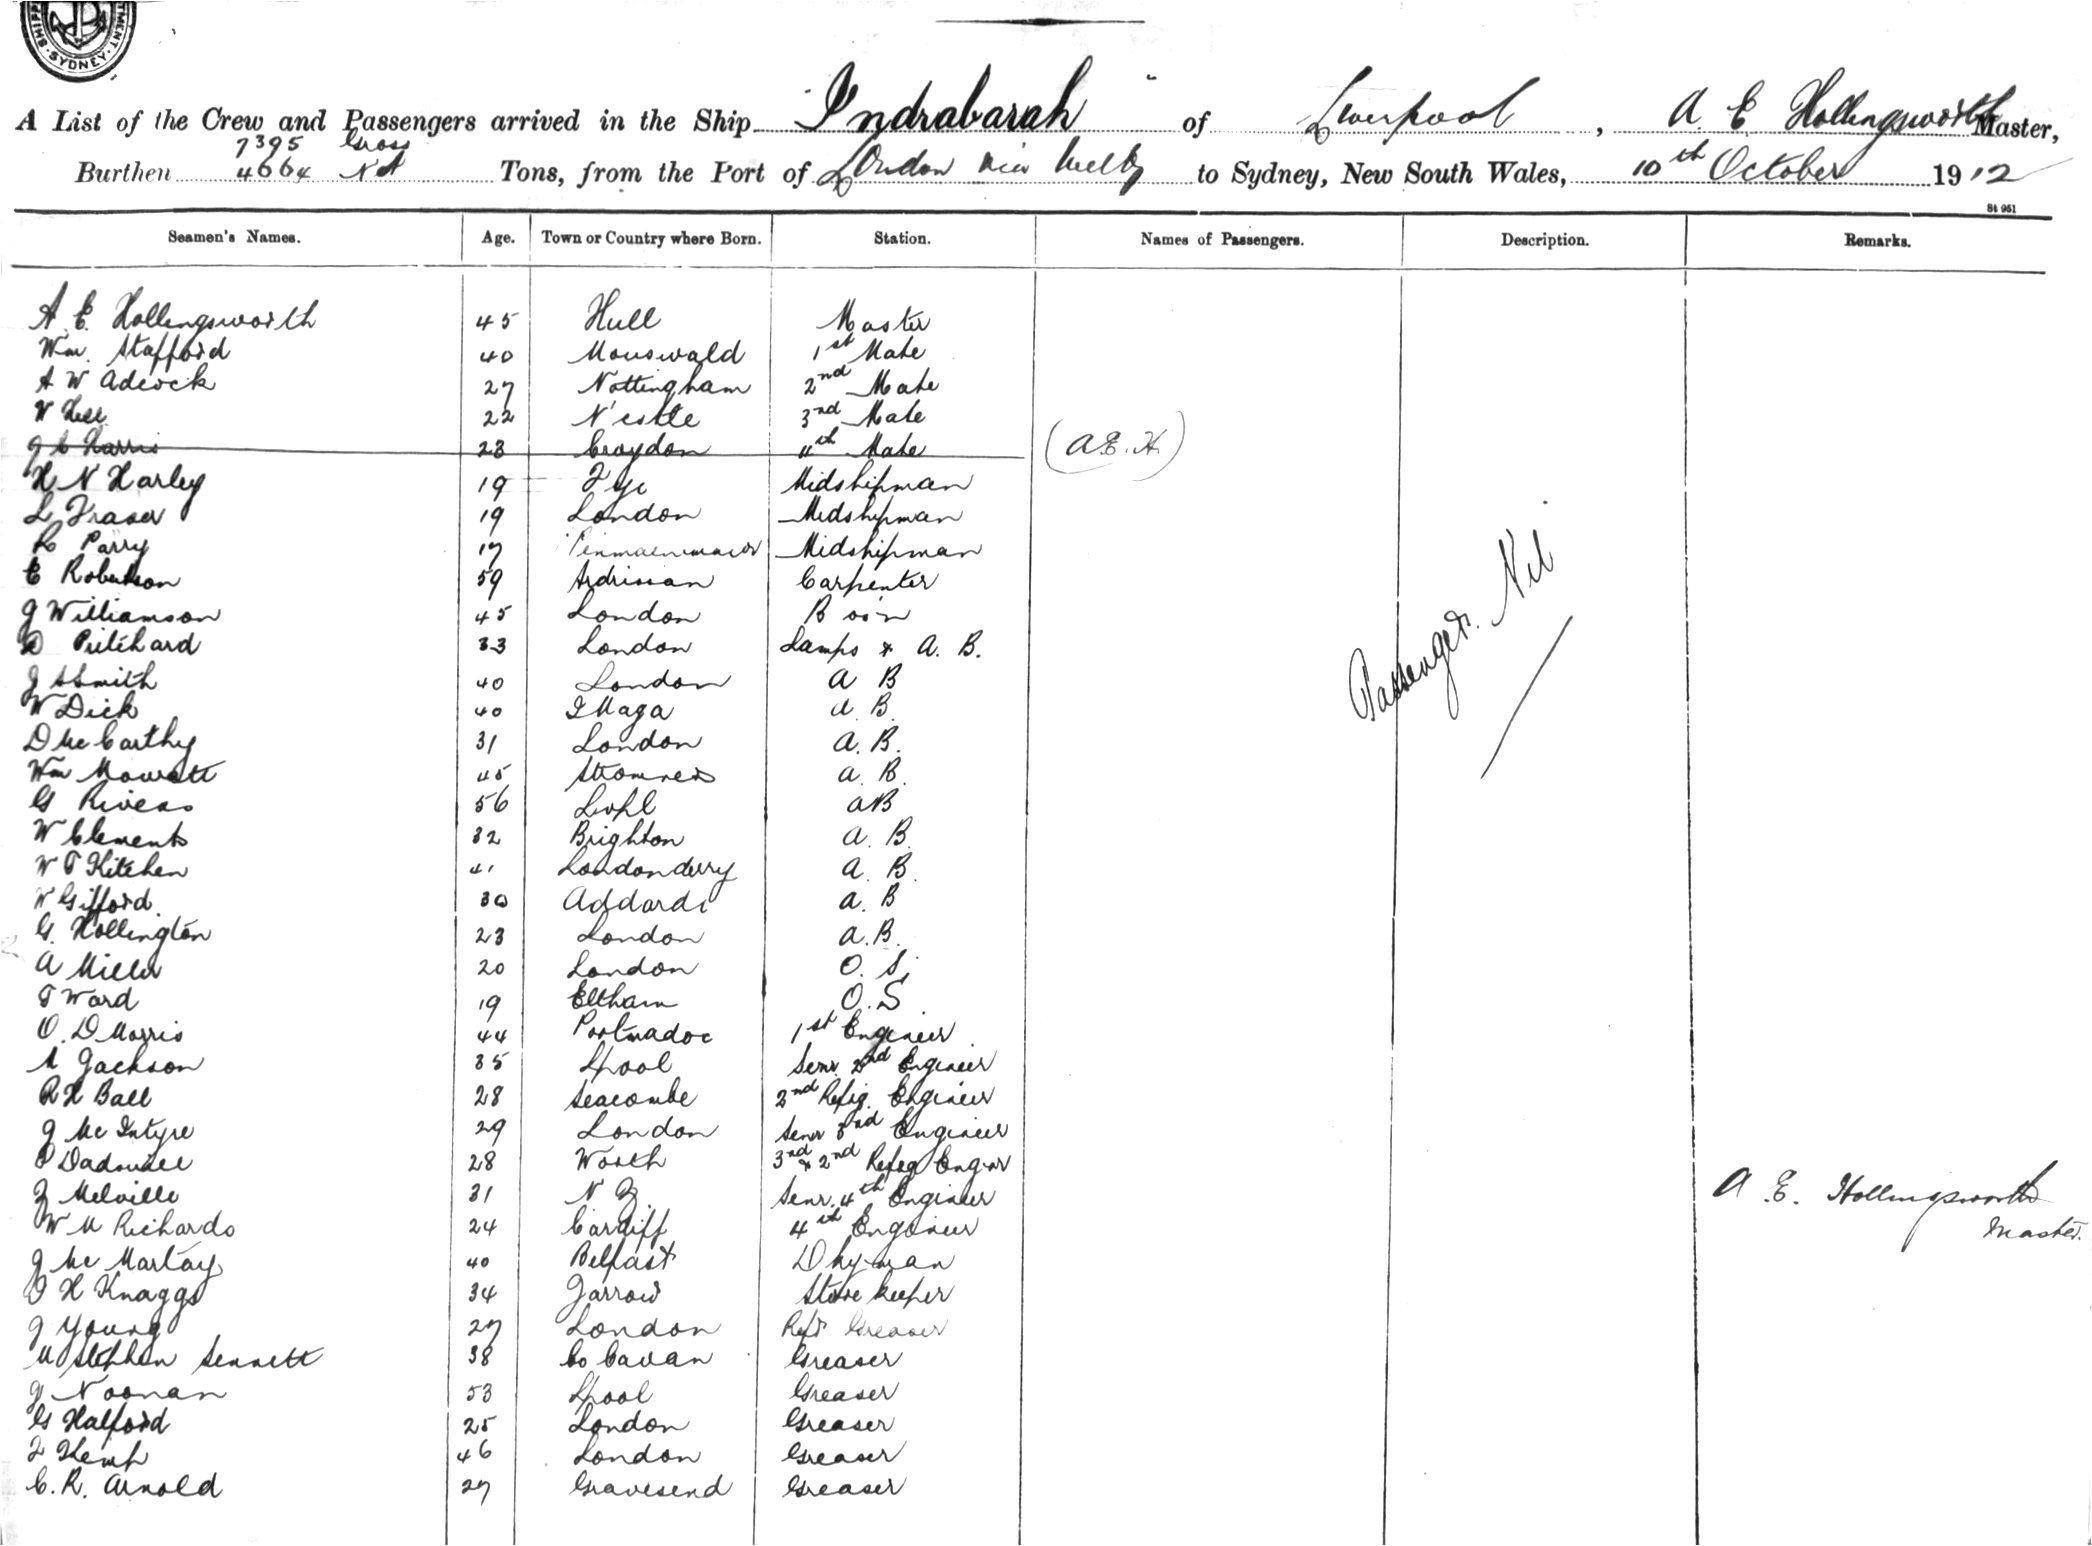 SHIPP
TMENT. SYDNEY.
A List of the Crew and Passengers arrived in the Ship "Indrabarah" of Liverpool, A E Hollingsworth Master,
7395 Gross
Burthen 4664 Net Tons, from the Port of London via Melb to Sydney, New South Wales, 10th October 1912
St 951
Seamen's Names. Age. Town or Country where Born. Station. Names of Passengers. Description. Remarks.
A. E. Hollingsworth 45 Hull Master
Wm. Stafford 40 Mouswald 1st Mate
A W Adcock 27 Nottingham 2nd Mate
W Hill 22 N'cstle 3rd Mate
J C Harris 23 Croydon 4th Mate (A.E.H.)
H N Harley 19 Midshipman
L Fraser 19 London Midshipman
R Parry 17 Penmaenmawr Midshipman
C Robertson 59 Ardrissan Carpenter
J Williamson 45 London Bos'n
D Pritchard 33 London Lamps & A. B.
J A Smith 40 London A B
W Dick 40 A B.
D McCarthy 31 London A. B.
Wm Mowatt 45 Stromness A. B.
G Rivers 56 Livpl AB
W Clements 32 Brighton A. B.
W T Kitchen 41 Londonderry A. B.
W Gifford. 30 A. B
G. Hollington 23 London A. B.
A Miller 20 London O. S.
T Ward 19 Eltham O. S.
O. D Morris 44 Portmadoc 1st Engineer
A Jackson 35 Lpool Senr. 2nd Engineer
R H Ball 28 Seacombe 2nd Refrig. Engineer
J McIntyre 29 London Senr 3rd Engineer
28 3rd & 2nd Refrg Enginr
J Melville 31 N Z. Senr. 4th Engineer
W M Richards 24 Cardiff 4th Engineer
J Mc 40 Belfast Dkyman
J H Knaggs 34 Jarrow Storekeeper
J Young 27 London Refr Greaser
M Stephen Sennett 38 Co Cavan Greaser
J Noonan 53 Lpool Greaser
G Halford 25 London Greaser
J Kemp 46 London Greaser
C. R. Arnold 27 Gravesend Greaser
Passengers. Nil
A. E. Hollingsworth
Master.